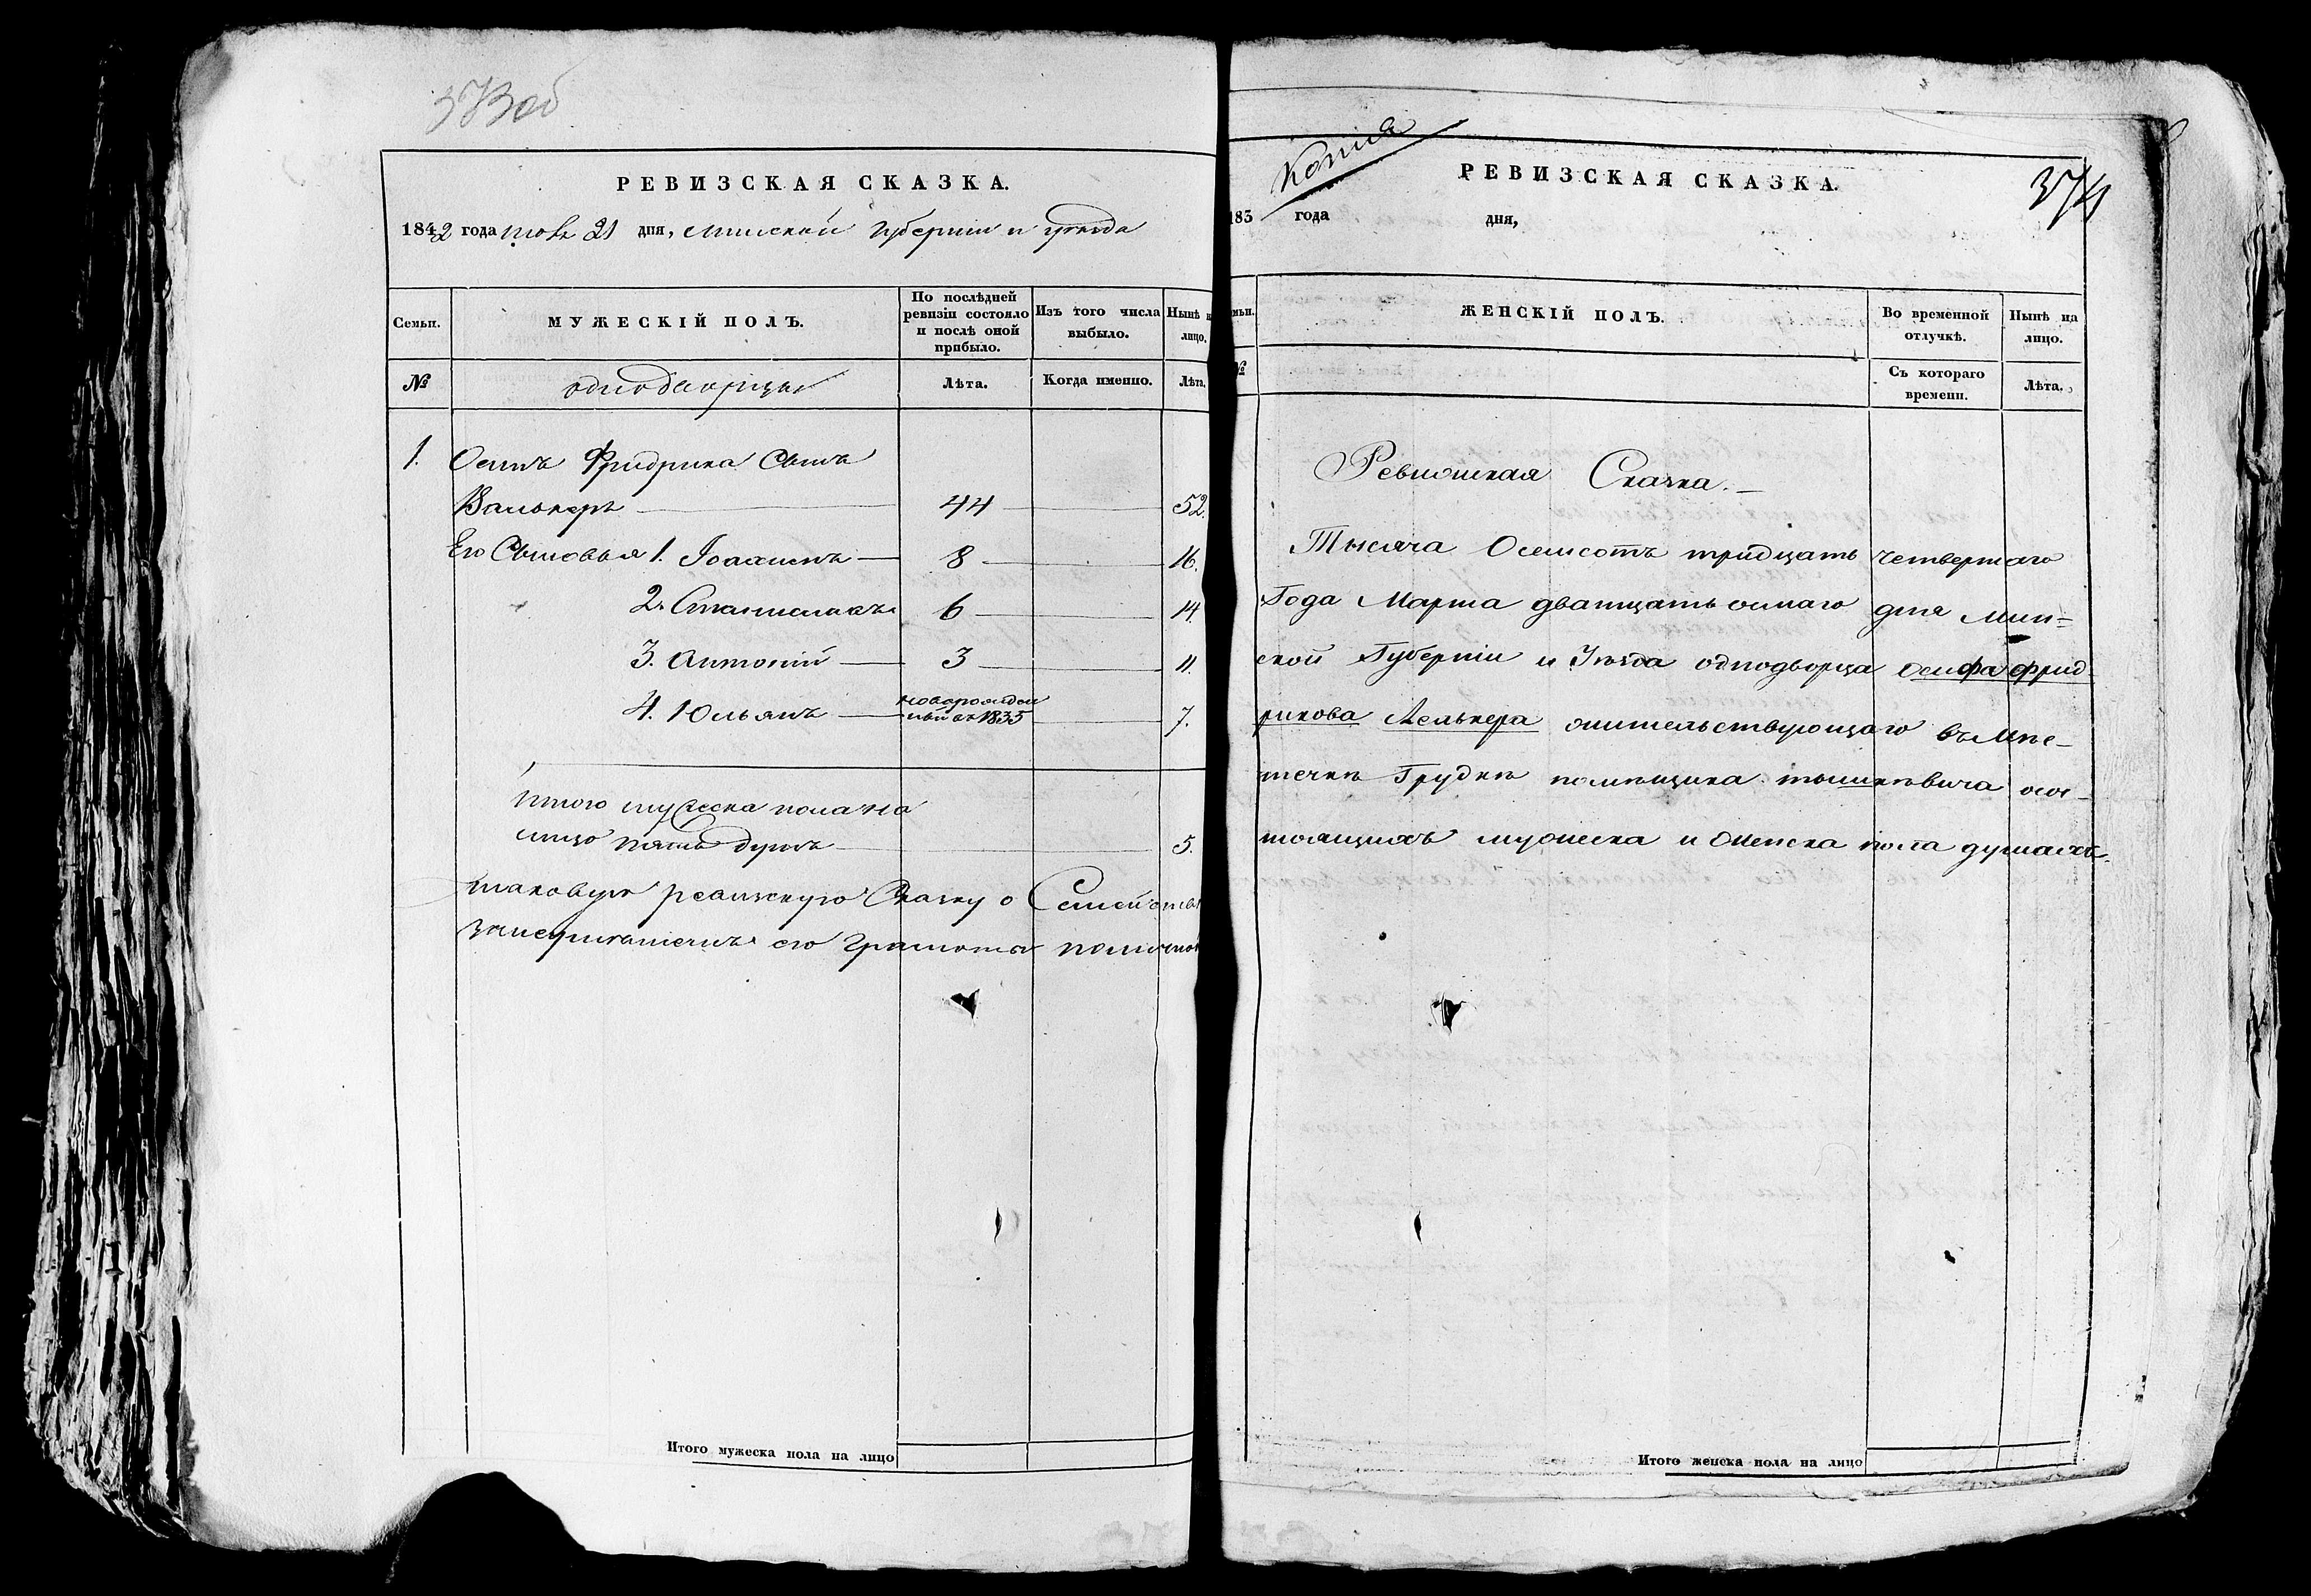 373 об
РЕВИЗСКАЯ СКАЗКА.
1842 года июля 21 дня, Минской губернии и уѣзда
Семьи.
МУЖЕСКІЙ ПОЛЪ.
По послѣдней ревизіи состояло и послѣ оной прибыло.
Изъ того числа выбыло.
Нынѣ на лицо.
№
однодворцы
Лѣта.
Когда именно.
Лѣта.
1. Осипъ Фридрика Сынъ
Валькеръ 44 52.
Его Сыновья 1. Іоахимъ 8 16.
2. Станиславъ 6 14.
3. Антоній 3 11.
4. Юльянъ новорожден
ный въ 1835 7.
Итого мужеска пола на
лицо пять душъ 5.
таковую ревизскую Сказку о Семействѣ
его грамоты
Итого мужеска пола на лицо
Копія
РЕВИЗСКАЯ СКАЗКА.
374
183 года дня,
ЖЕНСКІЙ ПОЛЪ.
Во временной отлучкѣ.
Нынѣ на лицо.
№
Съ котораго времени.
Лѣта.
Ревизская Сказка.
Тысяча Осемсотъ тридцать четвертаго
Года Марта двацать осмаго дня Мин=
ской Губерніи и Уѣзда однодворца Осифа Фрид
рикова Лелькера жительствующаго въ Мѣс-
течкѣ Грудкѣ помѣщика тышкѣвича осос-
тоящихъ мужеска и Женска пола душахъ.
Итого женска пола на лицо